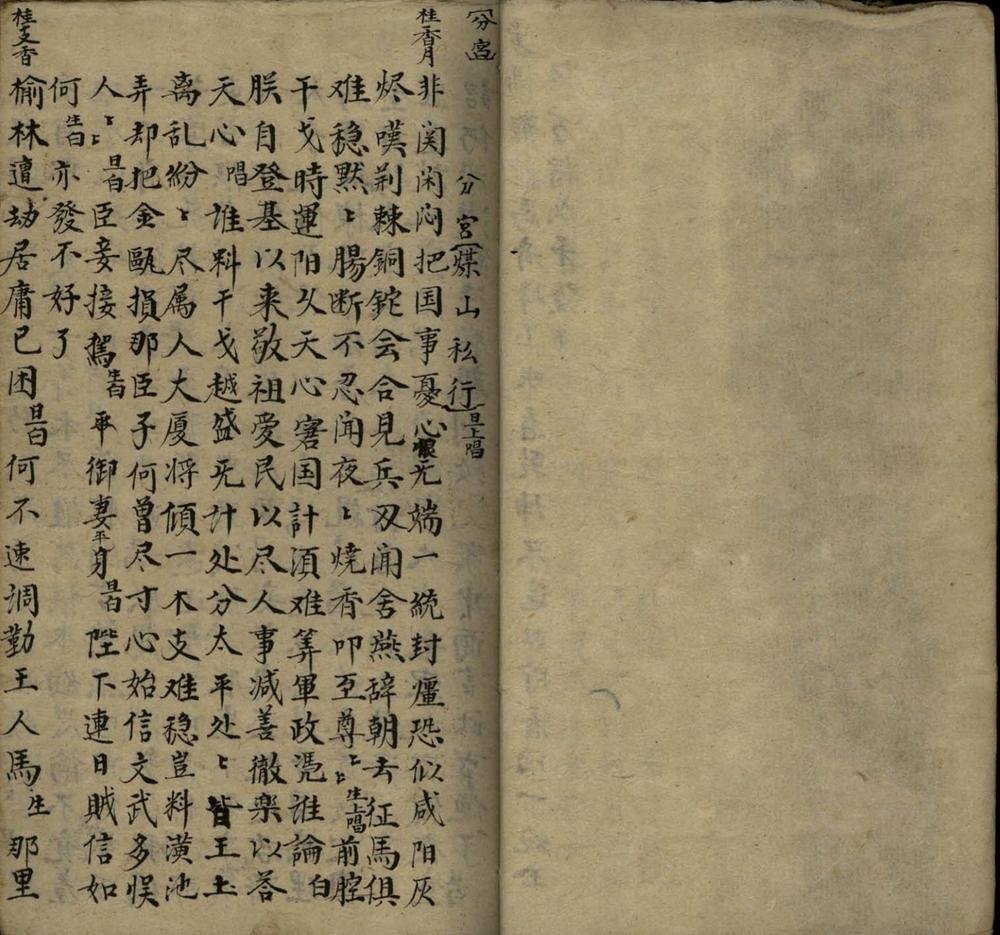 分宫
分宫(煤山私行)旦上唱
桂香月
非関闲闷把国事憂心恨无端一統封疆恐似咸阳灰
烬嘆荆棘銅鉈会合見兵刄闻舍燕辞朝去征馬俱
难穏默〻腸断不忍闻夜〻焼香叩至尊〻〻生上唱前腔
干戈時運阳乆天心害国計須难筭軍政凴谁論白
朕自登基以来敬祖爱民以尽人事减善徹樂以荅
天心唱谁料干戈越盛无计处分太平处〻皆王土
离乱紛〻尽属人大厦将傾一木支难穏豈料潢池
弄却把金甌損那臣子何曾尽寸心始信文武多悮
人〻〻旦白臣妾接驾生白平御妻平身旦白陛下連日贼信如
何生白亦發不好了
桂支香
榆林遭劫居庸已困旦白何不速調勤王人馬生那里